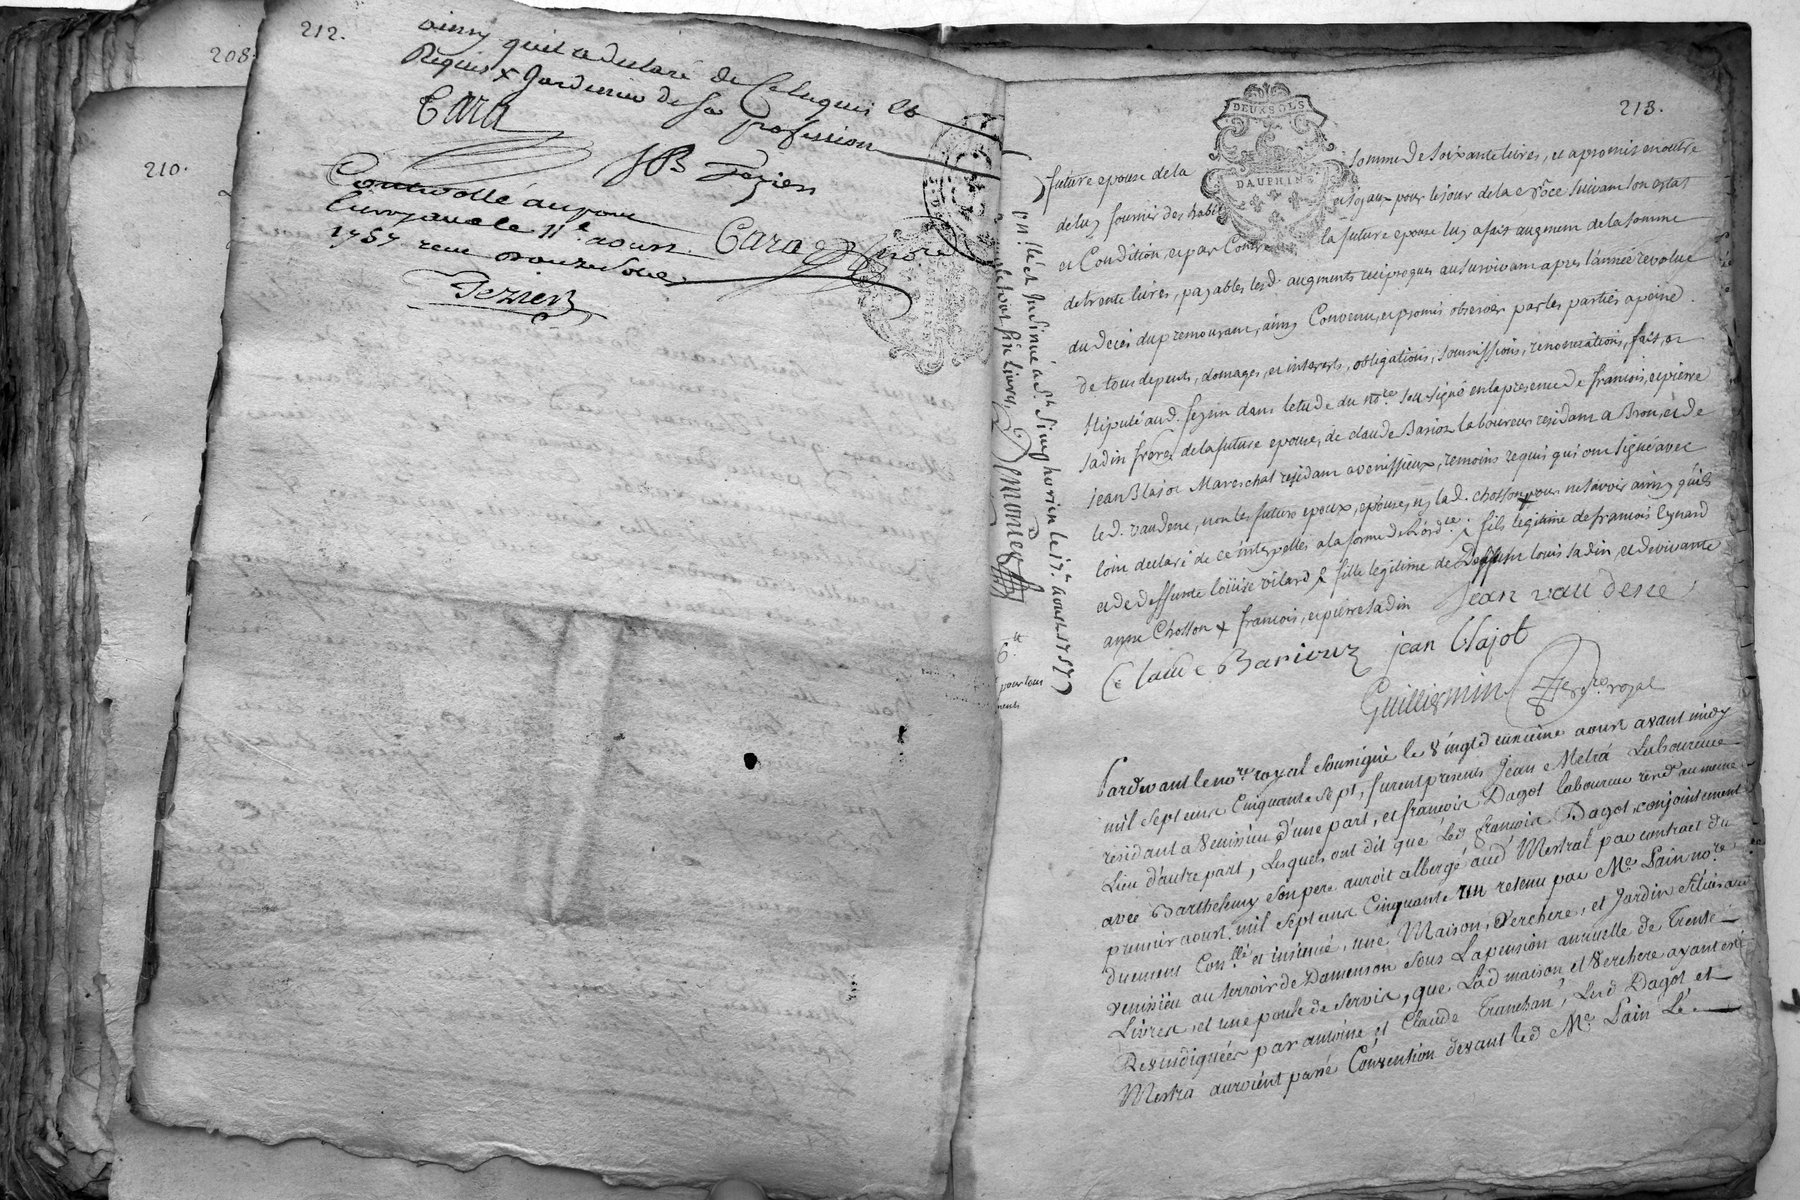 208.
210.
212.
ainsy quil a declaré de Ce Enquis et
Requis + Jardinier de sa profession
Cara
JB Tezier
Controllé au pont
le 11e aoust
1757 recu douze sols
Cara
Tezier
213.
DEUX SOLS
DAUPHINÉ
future epouse de la somme de soixante livres, et a promis en outre
de luy fournir des habits et joyaux pour le jour de la suivant son estat
et Condition, et par Contre la future epouse luy a fait augment de la somme
de trente livres, payables lesd. augments reciproques au survivant apres l'année revolue
du deces du premourant, ainsy Convenu, et promis observer par les parties a peine
de tous depents, domages, et interests, obligations, soumissions, renonciations, fait, et
stipulé aud. fezin dans letude du nore. sousigné en la presence de francois, et pierre
sadin freres de la future epouse, de claude Barioz laboureur residant a Bron, et de
jean Blajot Mareschal residant a venissieux, temoins requis qui ont signé avec
led. vaudene, non les futurs epoux, epouse, ny lad. chosson pour ne savoir ainsy quils
l'ont declaré de ce interpellés a la forme de l'ordce. + fils legitime de francois Eynard
et de deffunte loüise vilard + fille legitime de Deffunt louis sadin, et de vivante
anne Chosson + francois, et pierre sadin Jean vaudene
Claude Bariouz jean blajot
Guilliermin nore royal
on.llé et Insinué a St. Simphorien le 17e. aoust 1757
six livres Demonteg
6 tt
pour tous
Pardevant le nore royal sousigné le vingtd'eunieme aoust avant midy
mil sept cens Cinquante sept, furent presents Jean Metra Laboureur
residant a Venissieu d'une part, et francois Dagot laboureur resid. au meme
Lieu d'autre part, Lesquels ont dit que led francois Dagot conjointement
avec Barthelemy son pere auroit albergé aud Mestral par contract du
premier aoust mil sept cens Cinquante un retenu par Me. Pain nore.
duement Con.llé et insinué, une Maison, verchere, et Jardin situés aud
venissieu au terroir de Damenson sous La pension annuelle de Trente
Livres, et une poule de servis, que Lad maison et Verchere ayant esté
Revendiquées par antoine et Claude Tranchan, Lesd Dagot et
Mestra auroient passé Convention devant led Me. Pain Le